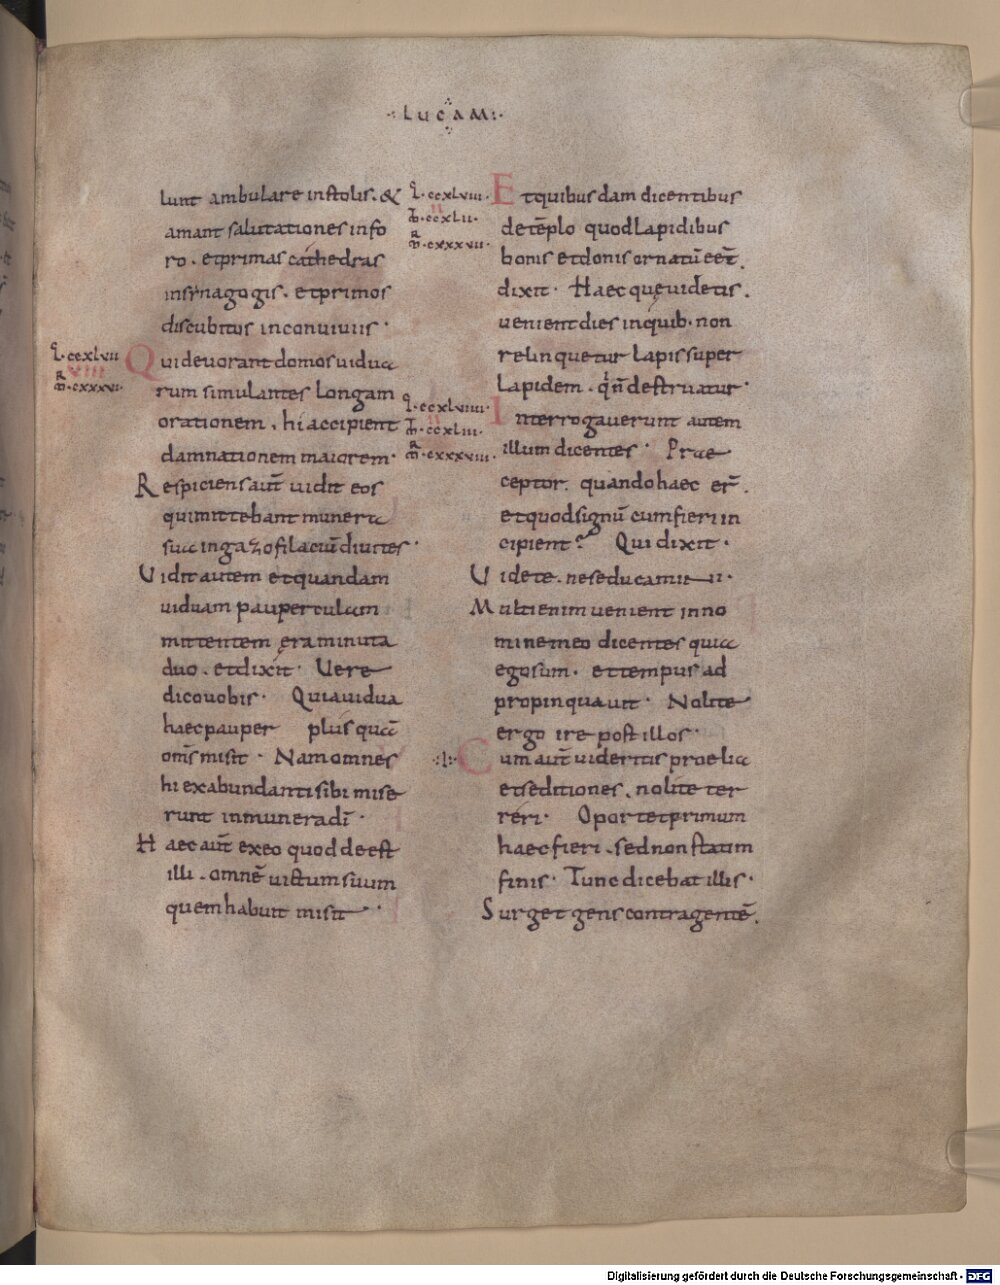 · LUCAM ·
lunt ambulare instolis · &
amant salutationes info
ro · etprimas cathedras
insynagogis · etprimos
discubitus inconuiuiis ·
L · ccxlvii
VIII
M · cxxxvi ·
Quideuorant domos uidua
rum simulantes longam
orationem , hi accipient
damnationem maiorem ·
Respiciens aut̄ uidit eos
quimittebant munera
sua ingazofilaciū diuites ·
Uidit autem etquandam
uiduam pauperculam
mittentem era minuta
duo · etdixit · Uere
dico uobis · Quia uidua
haec pauper plus quā
oms̄ misit · Nam omnes
hi exabundanti sibi mise
runt inmunera dī ·
Haec aut̄ exeo quod deest
illi · omnē uictum suum
quem habuit misit ·
L · ccxlviii ·
II
M̄ · ccxlii ·
M · cxxxvii ·
Et quibusdam dicentibus
detēplo quod lapidibus
bonis etdonis ornatū eēt ·
dixit · Haec que uidetis ·
uenient dies inquib · non
relinquetur lapis super
lapidem · qn̄ destruatur ·
L · ccxlviiii ·
II
M̄ · ccxliii ·
M · cxxxviii ·
Interrogauerunt autem
illum dicentes · Prae
ceptor · quando haec er̄ ·
etquod signū cum fieri in
cipient ? Qui dixit ·
Uidete · ne seducamini ·
Multi enim uenient inno
mine meo dicentes quia
ego sum · ettempus ad
propinquauit · Nolite
ergo ire post illos ·
· I · Cum aut̄ uideritis proelia
etseditiones , nolite ter
reri · Oportet primum
haec fieri · sed non statim
finis · Tunc dicebat illis ·
Surget gens contra gentē ·
Digitalisierung gefördert durch die Deutsche Forschungsgemeinschaft - DFG